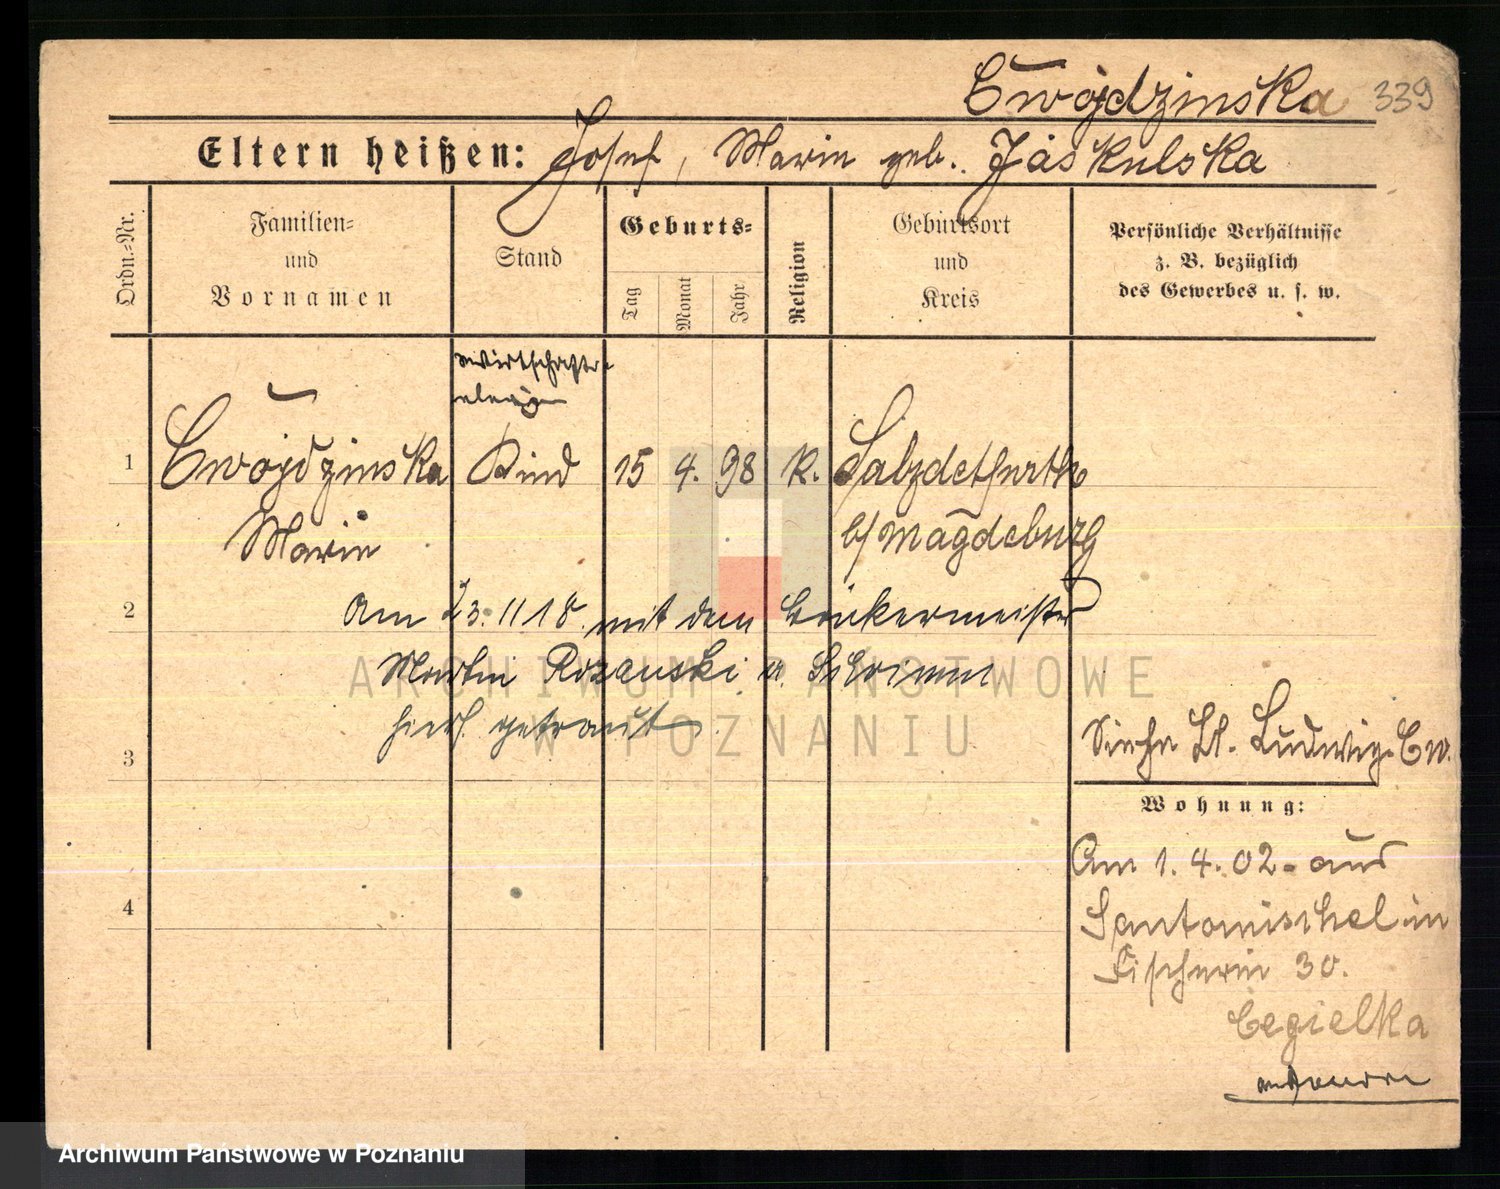 Cwojdzinska 339
Eltern heißen: Josef, Marie geb. Jaskulska
Ordn.-Nr.
Familien-
und
Vornamen
Stand
Geburts-
Tag
Monat
Jahr
Religion
Geburtsort
und
Kreis
Persönliche Verhältnisse
z. B. bezüglich
des Gewerbes u. s. w.
Wirtschafts-
1 Cwojdzinska Kind 15 4. 98 k. Salzdethfurth
Marie b/ Magdeburg
2 Am 23.11 18. mit dem Bäckermeister
Martin Rozanski a. Schrimm
hier getraut
3
Siehe Bl. Ludwig Cw.
Wohnung:
Am 1. 4. 02. aus
Santomischel in
Fischerei 30.
4
Cegielka
ARCHIWUM PAŃSTWOWE
W POZNANIU
Archiwum Państwowe w Poznaniu